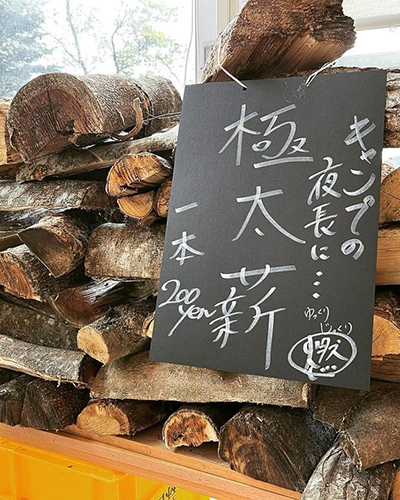 キャンプの
夜長に…
極太薪
一本
200yen
ゆっくり
じっくり